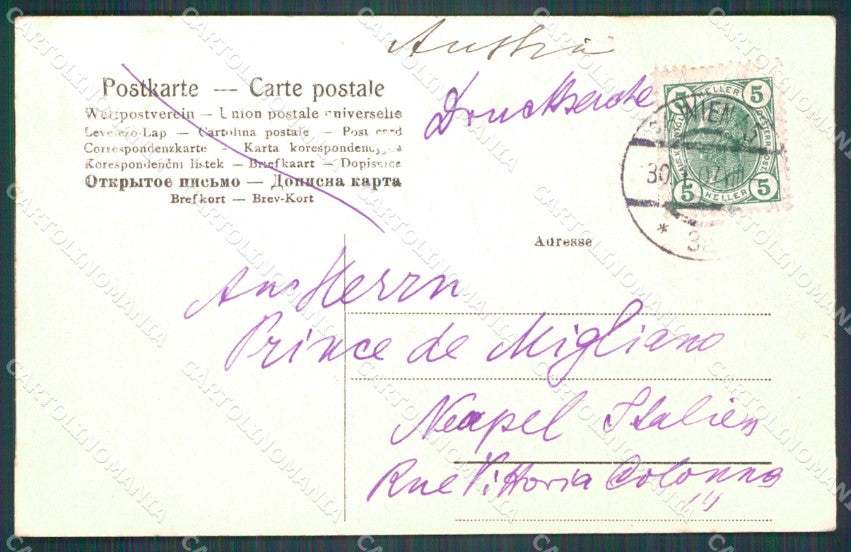 Austria
Drucksache
Postkarte — Carte postale
Weltpostverein — Union postale universelle
Levelező-Lap — Cartolina postale — Post card
Correspondenzkarte — Karta korespondencyjna
Korespondenční listek — Briefkaart — Dopisnice
Открытое письмо — Дописна карта
Brefkort — Brev-Kort
WIEN
30
5 HELLER 5
5 HELLER 5
* 3a
Adresse
An Herrn
Prince de Migliano
Neapel Italien
Rue Vittoria Colonna
CARTOLINOMANIA